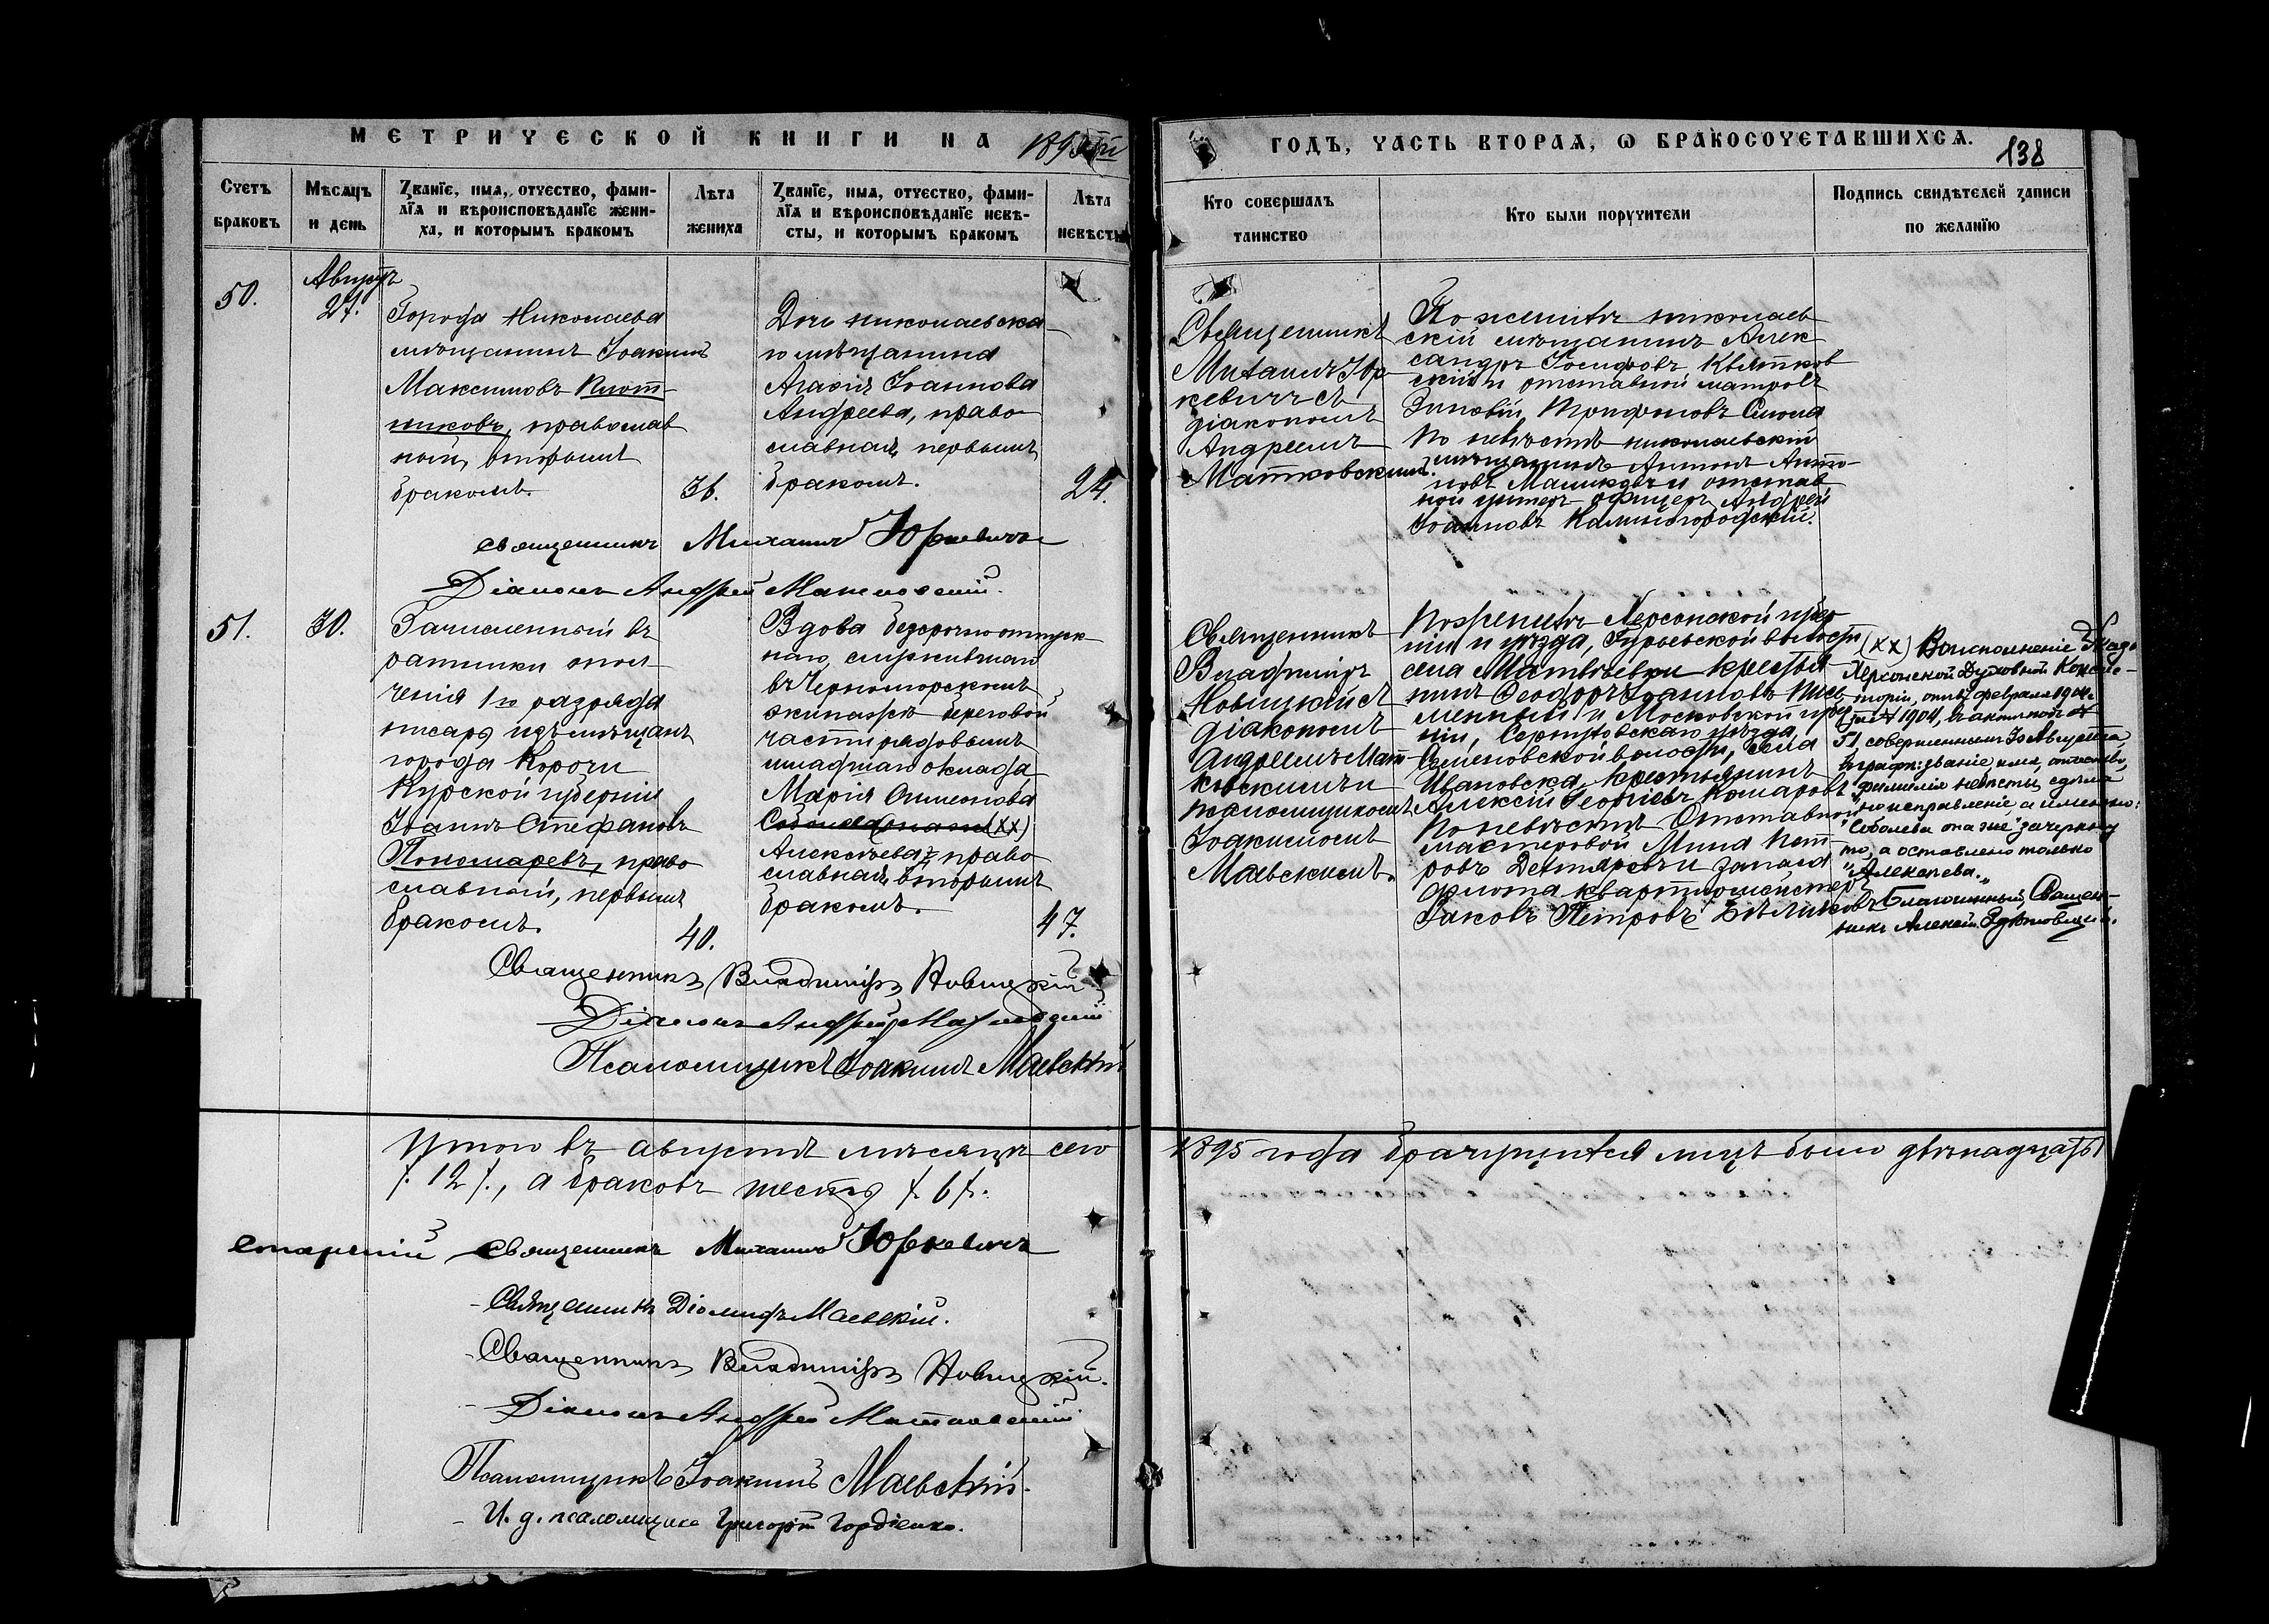 МЕТРИЧЕСКОЙ КНИГИ НА 1895й
ГОДЪ, ЧАСТЬ ВТОРАЯ, Ѡ БРАКОСОЧЕТАВШИХСЯ.
138
Счетъ браковъ
Мѣсяцъ и день
Званїе, имя, отчество, фами-
лїя и вѣроисповѣданїе жени-
ха, и которымъ бракомъ
Лѣта жениха
Званїе, имя, отчество, фами-
лїя и вѣроисповѣданїе невѣ-
сты, и которымъ бракомъ
Лѣта невѣсты
Кто совершалъ
таинство
Кто были поручители
Подпись свидѣтелей записи
по желанїю
50.
Августъ
27.
Города Николаева
мѣщанинъ Іоакимъ
Максимовъ Плот-
никовъ, православ
ный, вторымъ
бракомъ.
36.
Дочь николаевска-
го мѣщанина
Агафія Іоаннова
Андреева, право
славная, первымъ
бракомъ.
24.
Священникъ
Михаилъ Юр-
кевичъ съ
діакономъ
Андреемъ
Матковскимъ.
По женихѣ николаев
скій мѣщанинъ Алек
сандръ Іосифовъ Квятков
скій и отставной матросъ
Зиновій Трофимовъ Смола
По невѣстѣ николаевскій
мѣщанинъ Антонъ Анто-
новъ и отстав
ной унтеръ-офицеръ Андрей
Іоанновъ Калиногородскій.
священникъ Михаилъ Юркевичъ
Діаконъ Андрей Матковскій.
51.
30.
Зачисленный въ
ратники опол
ченія 1го разряда
писарь изъ мѣщанъ
города Корочи
Курской губерніи
Іоаннъ Стефановъ
Пономаревъ, право
славный, первымъ
бракомъ.
40.
Вдова безсрочноотпуск-
наго, служившаго
въ Черноморскомъ
экипажѣ береговой
части рядовымъ
младшаго оклада
Марія Симеонова
Соболева она же (хх)
Алексѣева, право
славная, вторымъ
бракомъ.
47.
Священникъ
Владиміръ
Новицкій съ
діакономъ
Андреемъ Мат-
ковскимъ и
псаломщикомъ
Іоакимомъ
Маевскимъ.
По женихѣ Херсонской губер
ніи и уѣзда, волости
села Матвѣевки крестья-
нинъ Ѳеодоръ Іоанновъ
и Московской губер
ніи, Серпуховскаго уѣзда,
Семеновской волости, села
Ивановска, крестьянинъ
Алексій Георгіевъ Комаровъ
По невѣстѣ Отставной
мастеровой Мина Пет-
ровъ Дегтяревъ и запаса
флота квартирмейстеръ
Іаковъ Петровъ Бѣликовъ
(хх) Во исполненіе Указа
Херсонской Духовной Консис-
торіи, отъ февраля 1904
1904, въ актѣ подъ №
51, совершеннымъ 30 Августа,
въ графѣ: званіе, имя, отчество,
фамилія невѣсты, сдѣла
но исправленіе, а именно:
"Соболева она же" зачеркну
то, а оставлено только
"Алексѣева."
Благочинный, Священ-
никъ Алексій
Священникъ Владиміръ Новицкій
Діаконъ Андрей Матковскій
Псаломщикъ Іоакимъ Маевскій
Итого въ августѣ мѣсяцѣ сего 1895 года брачущихся лицъ было двѣнадцать
/. 12 /., а браковъ шесть /. 6 /.
Старшій священникъ Михаилъ Юркевичъ
Священникъ Діомидъ Маевскій.
Священникъ Владиміръ Новицкій.
Діаконъ Андрей Матковскій
Псаломщикъ Іоакимъ Маевскій.
И. д. псаломщика Григорій Гордіенко.